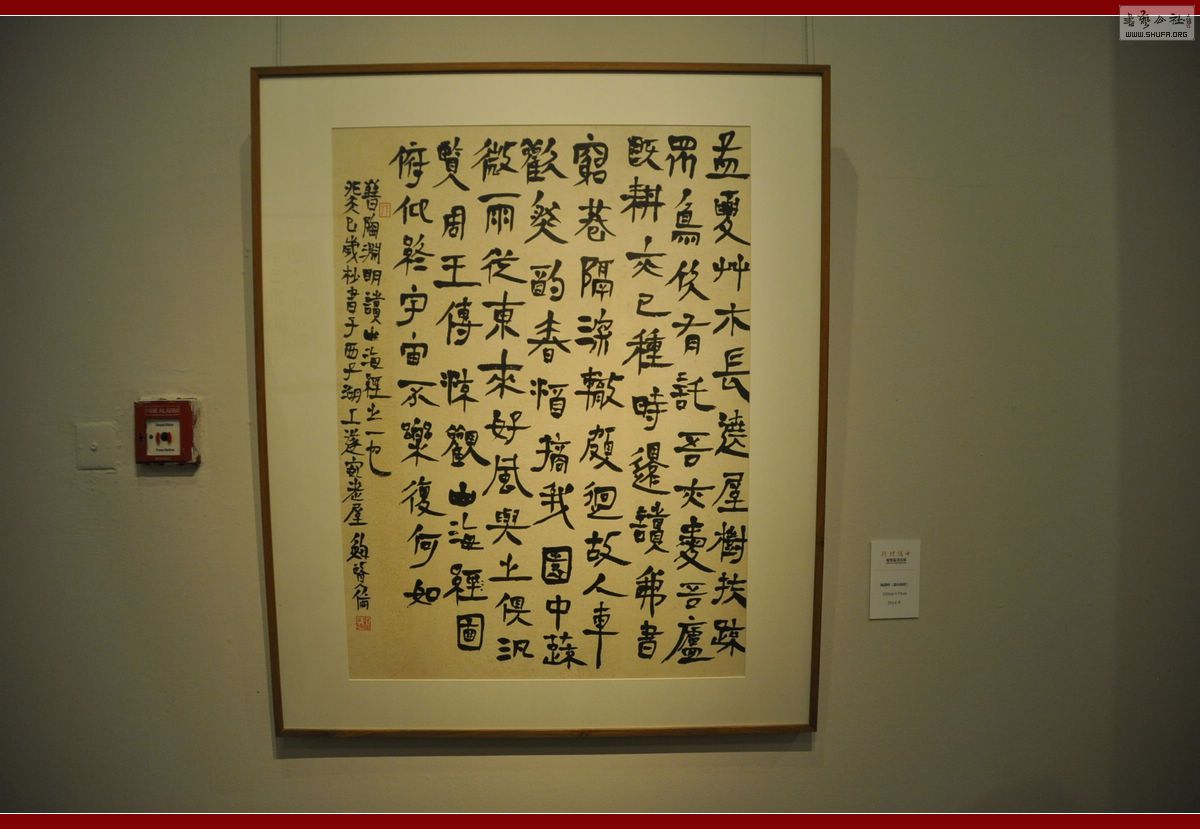 孟夏艸木長遶屋樹扶疎
眾鳥欣有託吾亦愛吾廬
既耕亦已種時還讀弗書
窮巷隔深轍頗迴故人車
歡然酌春酒摘我園中蔬
微雨從東來好風與之俱汎
覽周王傳㳅觀山海經圖
俯仰終宇宙不樂復何如
晉陶淵明讀山海經之一也
癸巳歲杪書于西子湖上
FIRE ALARM
書法公社
WWW.SHUFA.ORG